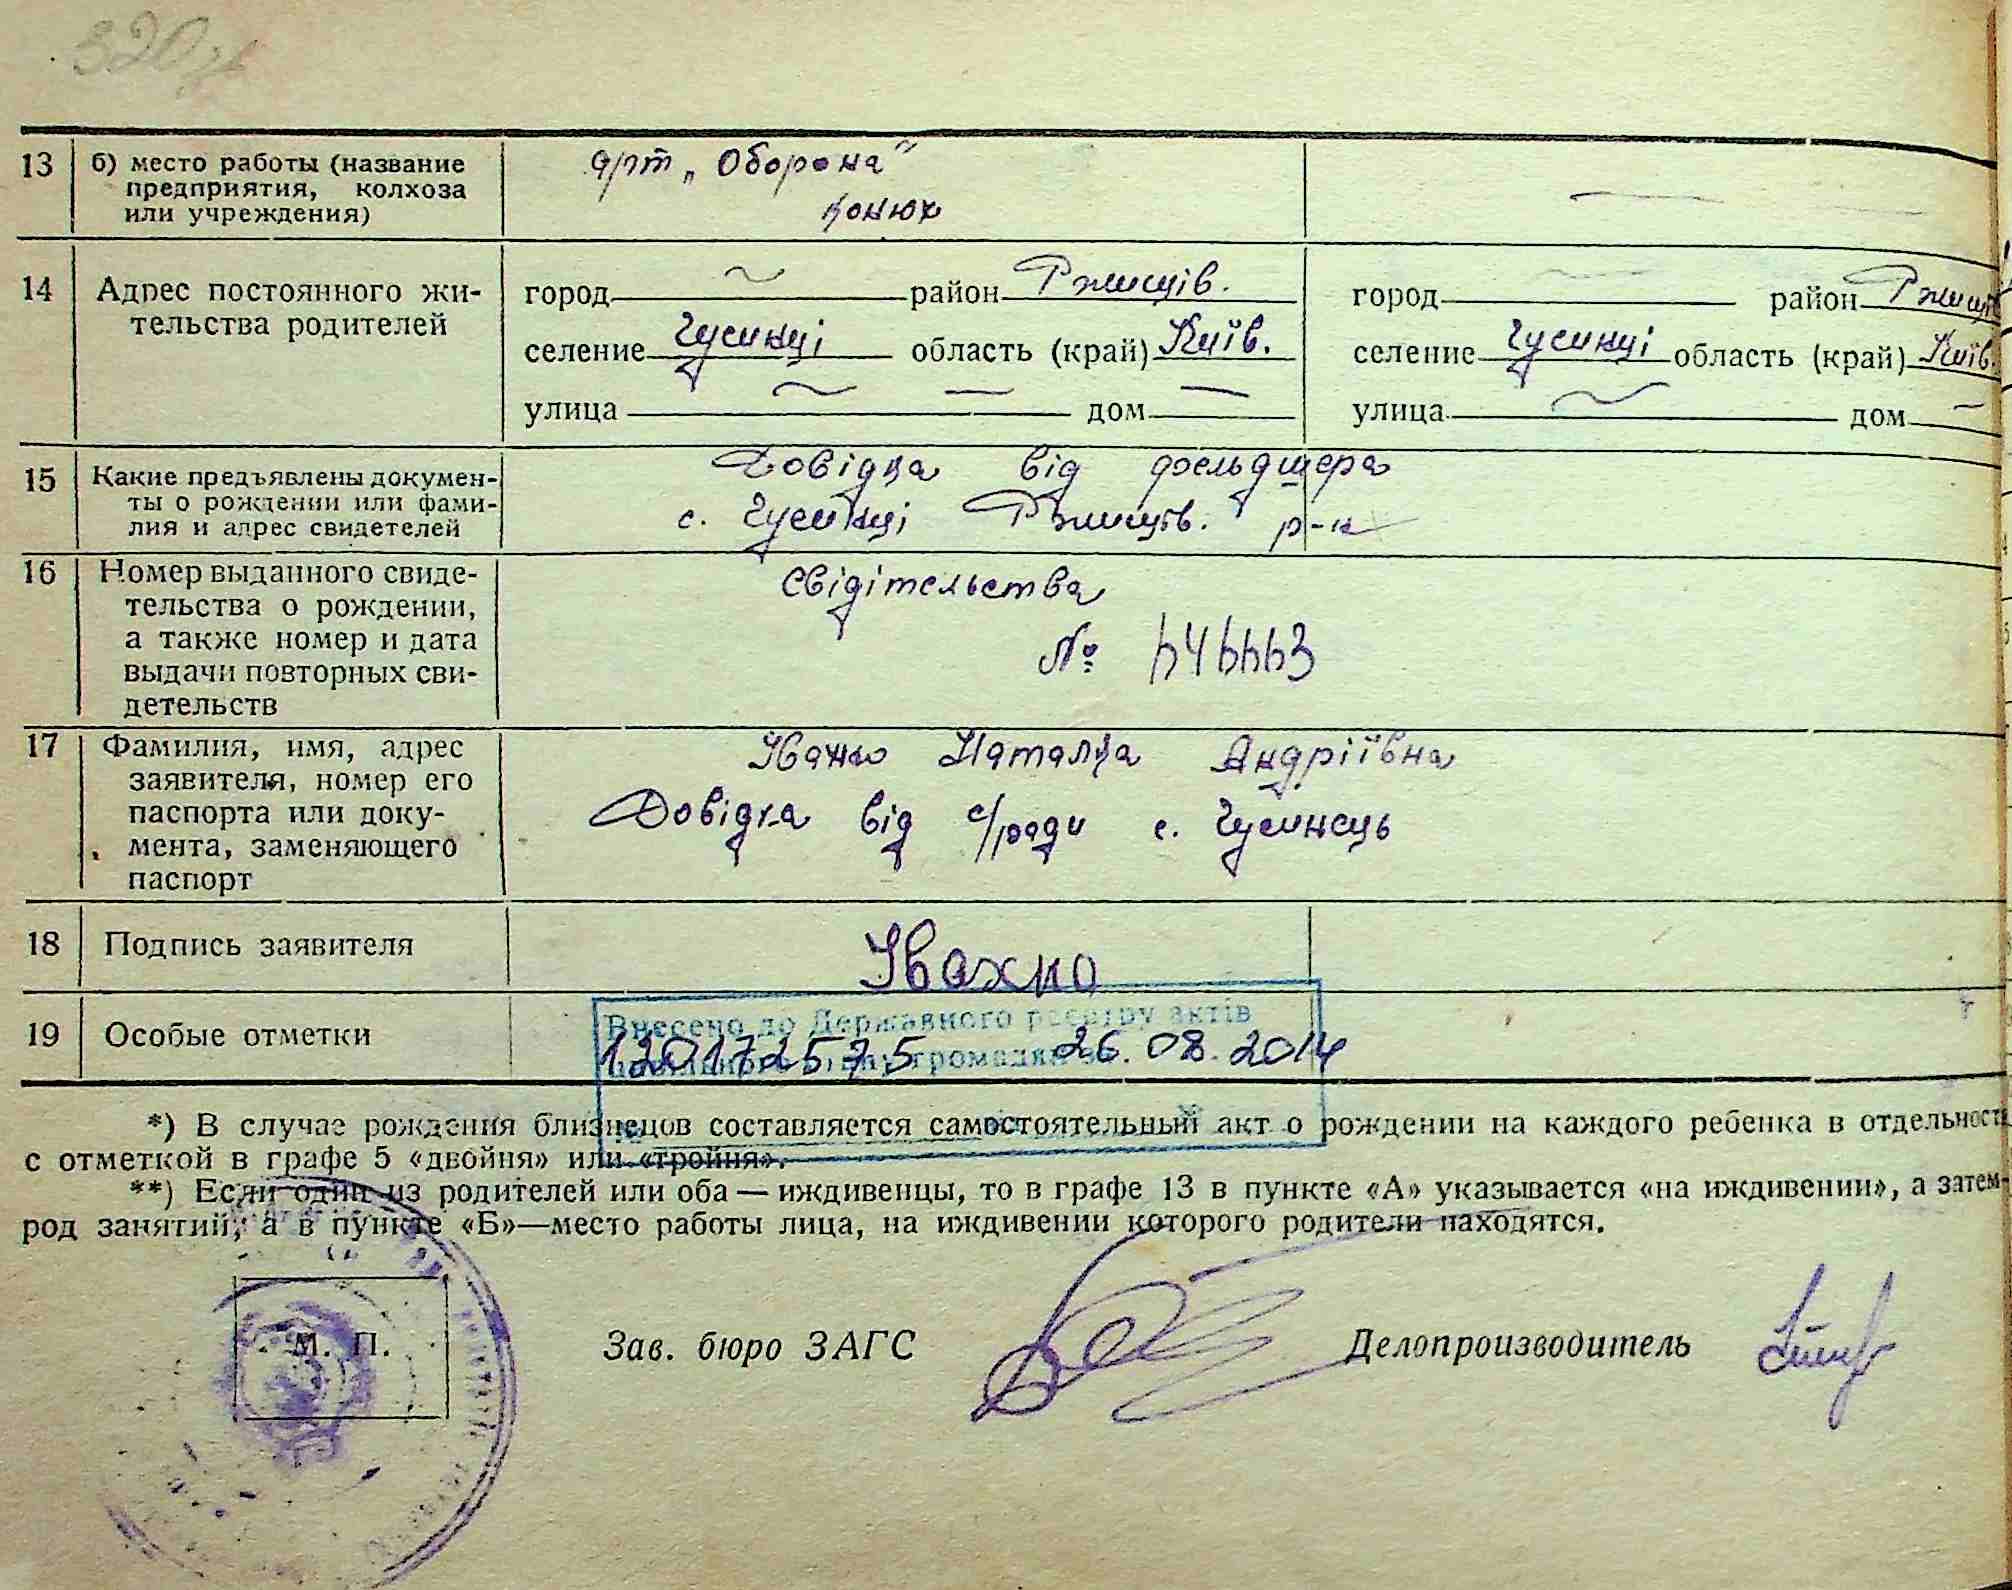 320
13 б) место работы (название предприятия, колхоза или учреждения) арт „Оборона" конюх —
14 Адрес постоянного жительства родителей
город ~ район Ржищів. город район Ржищ
селение Гусинці область (край) Київ. селение Гусинці область (край) Київ.
улица ~ — дом — улица ~ дом —
15 Какие предъявлены документы о рождении или фамилия и адрес свидетелей
Довідка від фельдшера
с. Гусинці Ржищів. р-н
16 Номер выданного свидетельства о рождении, а также номер и дата выдачи повторных свидетельств
Свідітельства
№
17 Фамилия, имя, адрес заявителя, номер его паспорта или документа, заменяющего паспорт
Івахно Наталка Андріївна
Довідка від с/ради с. Гусинець
18 Подпись заявителя Івахно
19 Особые отметки
Внесено до Державного реєстру актів
громадян
120172575 26.08.2014
*) В случае рождения близнецов составляется самостоятельный акт о рождении на каждого ребенка в отдельност
с отметкой в графе 5 «двойня» или «тройня».
**) Если один из родителей или оба — иждивенцы, то в графе 13 в пункте «А» указывается «на иждивении», а затем-
род занятий; а в пункте «Б»—место работы лица, на иждивении которого родители находятся.
М. П. Зав. бюро ЗАГС Делопроизводитель